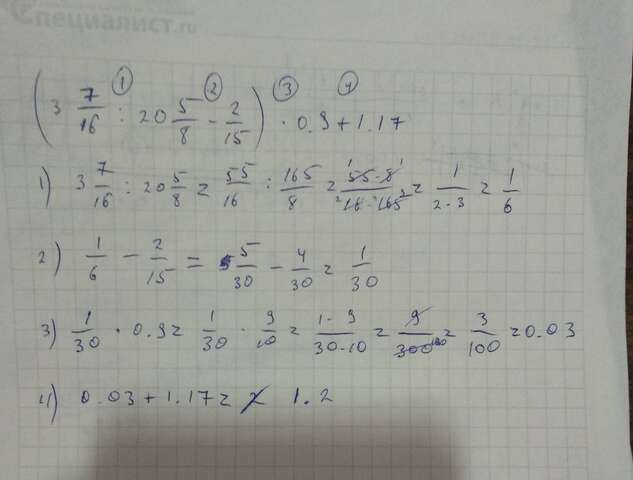 Специалист.ru
① ② ③ 4
(3 7/16 : 20 5/8 - 2/15) · 0.9 + 1.17
1) 3 7/16 : 20 5/8 = 55/16 : 165/8 = 55·8/16·165 = 1/2·3 = 1/6
2) 1/6 - 2/15 = 5/30 - 4/30 = 1/30
3) 1/30 · 0.9 = 1/30 · 9/10 = 1·9/30·10 = 9/300 = 3/100 = 0.03
4) 0.03 + 1.17 = 1.2